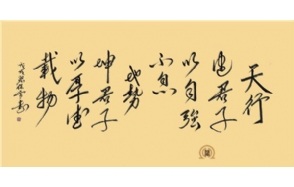 天行
健君子
以自強
不息
地勢
坤君子
以厚德
載物
戊戌